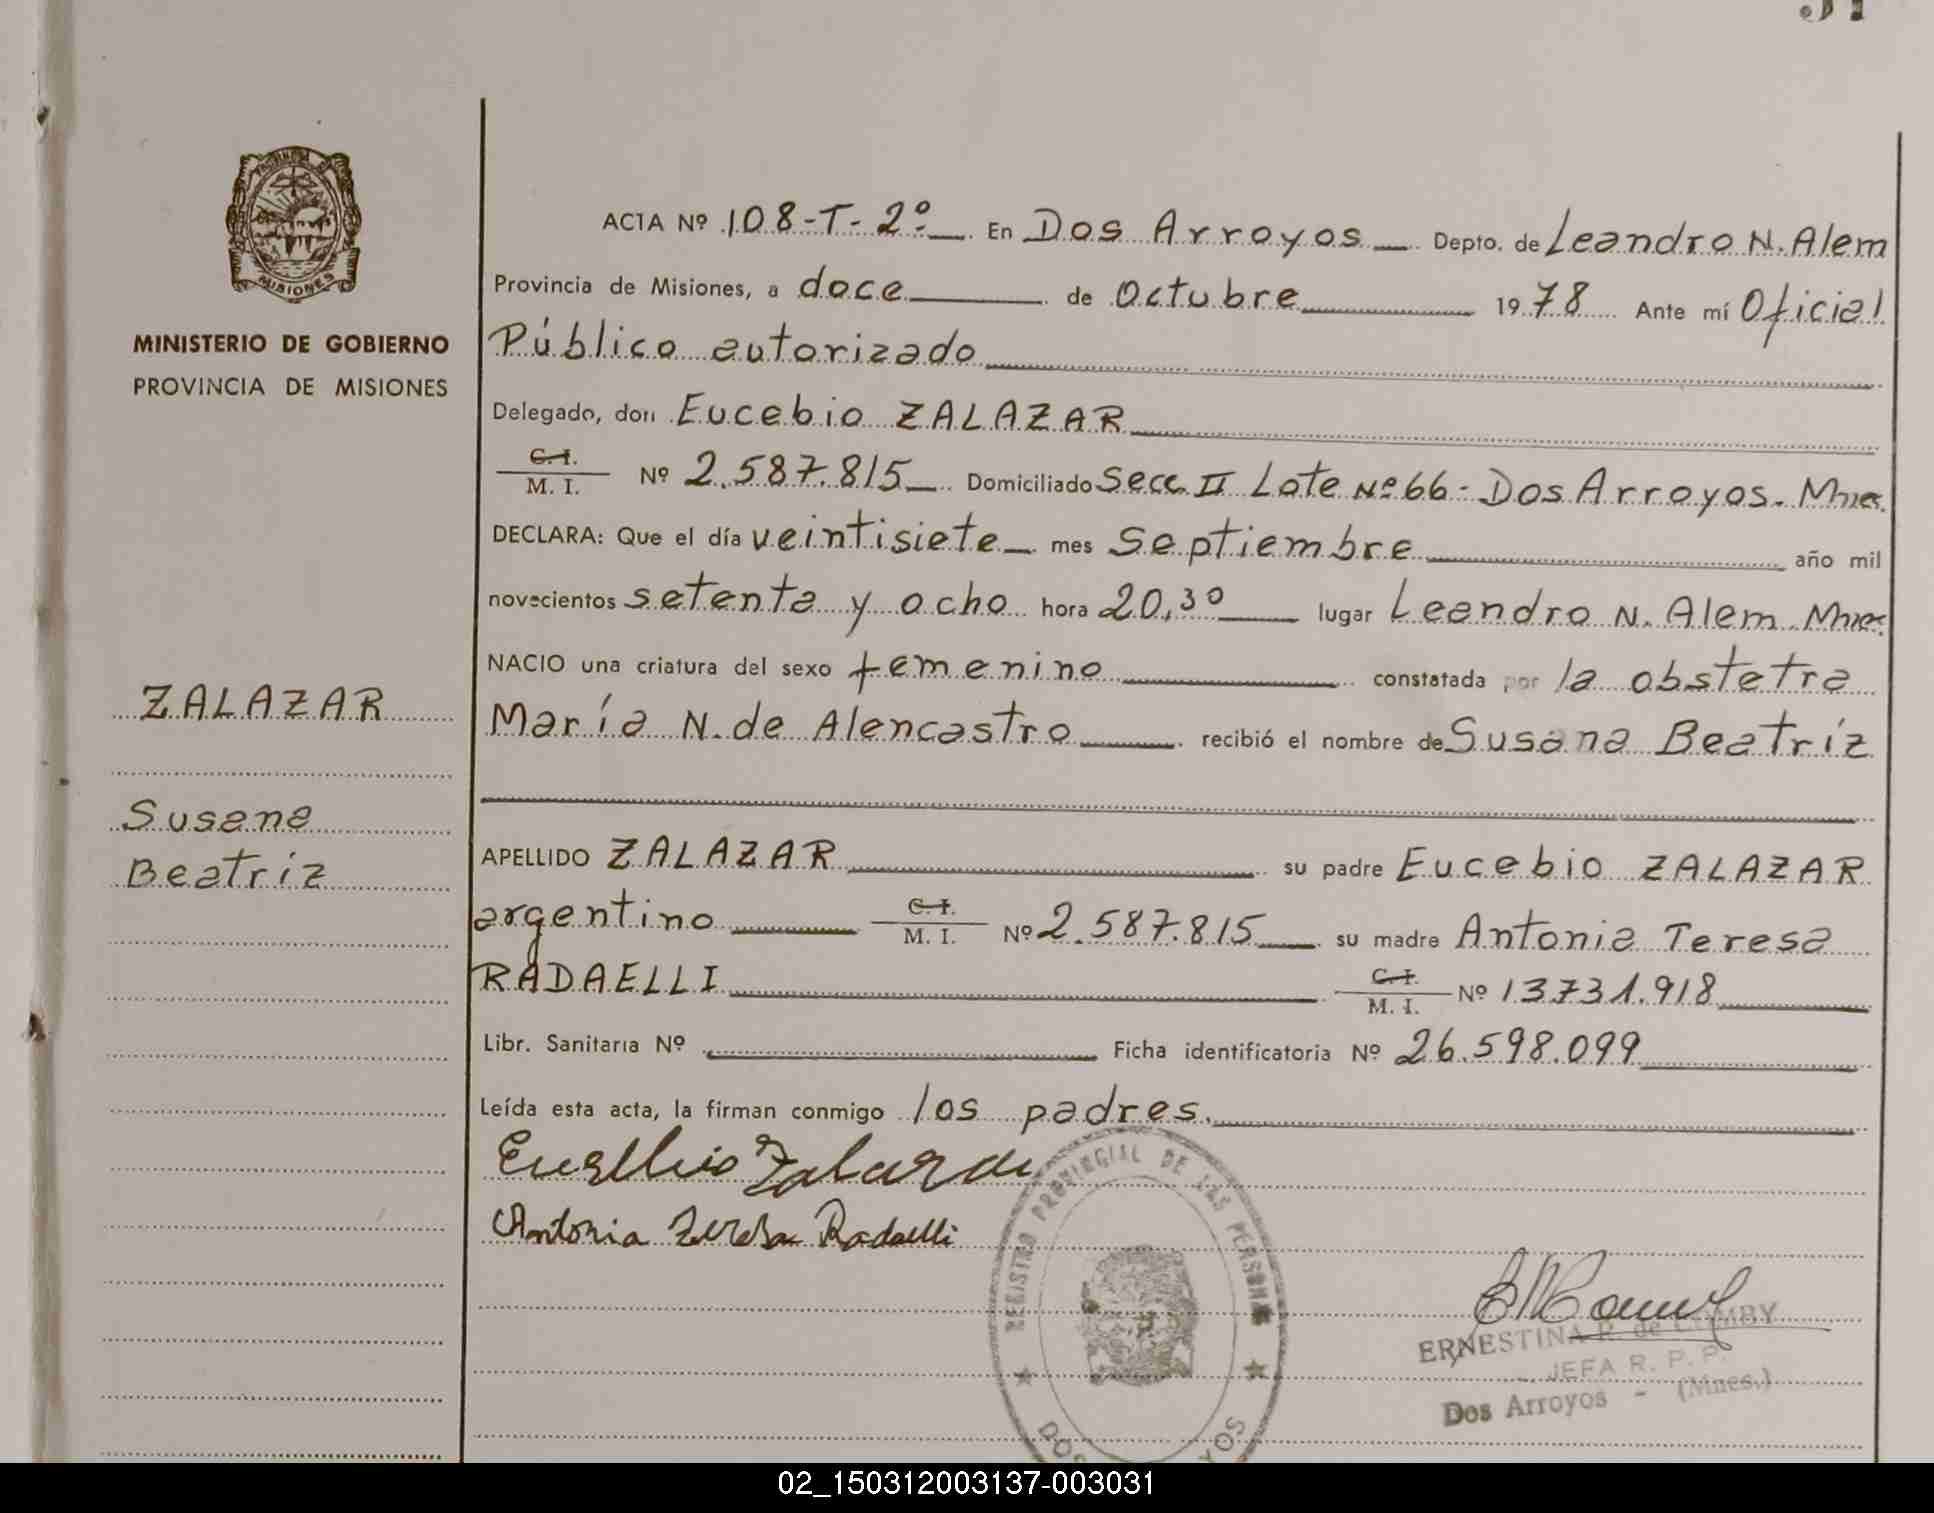 MISIONES
MINISTERIO DE GOBIERNO
PROVINCIA DE MISIONES
ZALAZAR
Susana
Beatríz
ACTA Nº 108-T-2º En Dos Arroyos Depto. de Leandro N. Alem
Provincia de Misiones, a doce de Octubre 1978 Ante mí Oficial
Público autorizado
Delegado, don Eucebio ZALAZAR
C. I.
M. I. Nº 2.587.815 Domiciliado Secc. II Lote Nº 66 - Dos Arroyos. Mnes.
DECLARA: Que el día veintisiete mes Septiembre año mil
novecientos setenta y ocho hora 20,30 lugar Leandro N. Alem. Mnes.
NACIO una criatura del sexo femenino constatada por la obstetra
María N. de Alencastro recibió el nombre de Susana Beatríz
APELLIDO ZALAZAR su padre Eucebio ZALAZAR
argentino C. I. M. I. Nº 2.587.815 su madre Antonia Teresa
RADAELLI C. I. M. I. Nº 13731.918
Libr. Sanitaria Nº Ficha identificatoria Nº 26.598.099
Leída esta acta, la firman conmigo los padres.
Eusebio Zalazar
Antonia Teresa Radaelli
REGISTRO PROVINCIAL DE LAS PERSONAS
ERNESTINA R. de
JEFA R. P. P.
Dos Arroyos - (Mnes.)
02_150312003137-003031